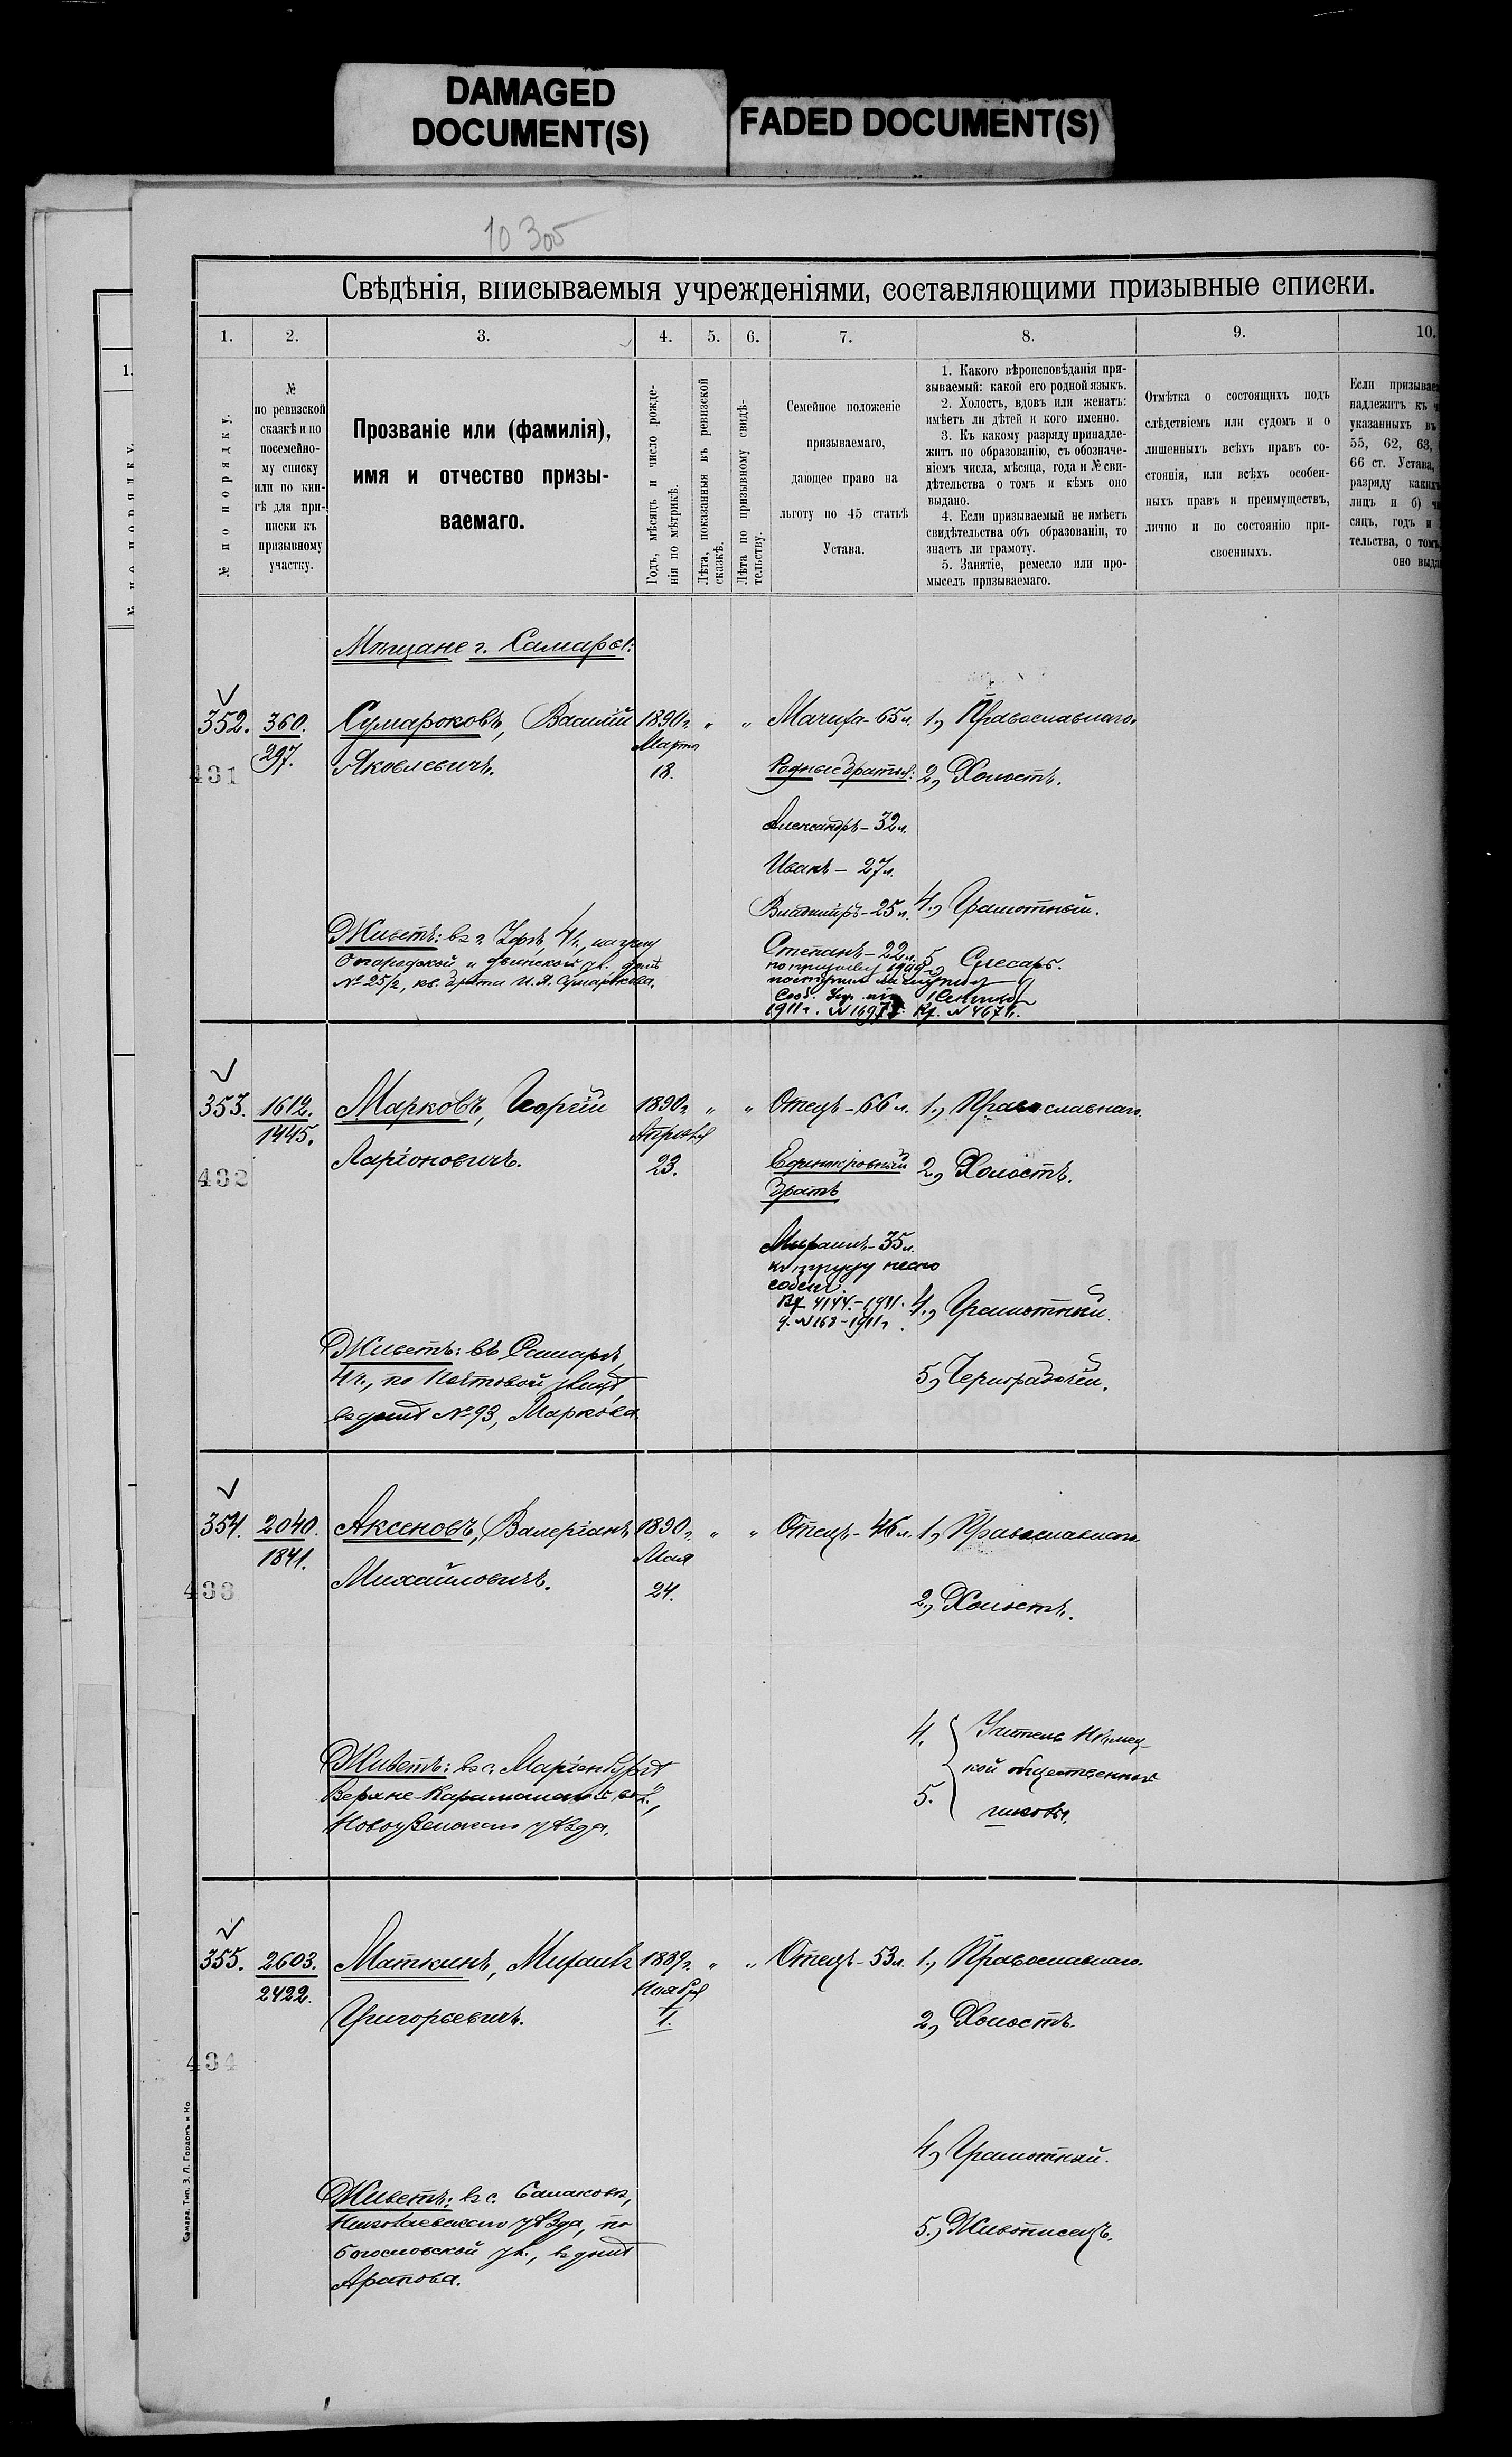 DAMAGED
DOCUMENT(S)
FADED DOCUMENT(S)
10 305
Свѣдѣнія, вписываемыя учрежденіями, составляющими призывные списки.
1. 2. 3. 4. 5. 6. 7. 8. 9. 10.
1.
№ по порядку.
№
по ревизской
сказкѣ и по
посемейно-
му списку
или по кни-
гѣ для при-
писки къ
призывному
участку.
Прозваніе или (фамилія),
имя и отчество призы-
ваемаго.
Годъ, мѣсяцъ и число рожде-
нія по мѣтрикѣ.
Лѣта, показанныя въ ревизской
сказкѣ.
Лѣта по призывному свидѣ-
тельству.
Семейное положеніе
призываемаго,
дающее право на
льготу по 45 статьѣ
Устава.
1. Какого вѣроисповѣданія при-
зываемый: какой его родной языкъ.
2. Холостъ, вдовъ или женатъ:
имѣетъ ли дѣтей и кого именно.
3. Къ какому разряду принадле-
житъ по образованію, съ обозначе-
ніемъ числа, мѣсяца, года и № сви-
дѣтельства о томъ и кѣмъ оно
выдано.
4. Если призываемый не имѣетъ
свидѣтельства объ образованіи, то
знаетъ ли грамоту.
5. Занятіе, ремесло или про-
мыселъ призываемаго.
Отмѣтка о состоящихъ подъ
слѣдствіемъ или судомъ и о
лишенныхъ всѣхъ правъ со-
стоянія, или всѣхъ особен-
ныхъ правъ и преимуществъ,
лично и по состоянію при-
своенныхъ.
Если призывае
надлежитъ къ ч
указанныхъ въ
55, 62, 63,
66 ст. Устава,
разряду какихъ
лицъ и б) чи
сяцъ, годъ и
тельства, о томъ,
оно выда
Мѣщане г. Самары:
352. 360. Сумароковъ, Василій 1890 г. " " Мачиха - 65 л. 1., Православнаго.
297. Марта
431 Яковлевичъ. 18. Родные братья: 2, Холостъ.
Александръ - 32 л.
Иванъ - 27 л.
Владиміръ - 25 л. 4., Грамотный.
Живетъ: въ г. Уфѣ, 4 ч., на углу
Степанъ - 22 л. 5, Слесарь.
Огородской и ул. домъ
по призыву 1909 г.
№ 25/2, кв. брата И. Я. Сумарокова.
1911 г.
353. 1612. Марковъ, Георгій 1890 г. " " Отецъ - 66 л. 1., Православнаго.
1445. Апрѣля
432 Ларіоновичъ. 23. Единокровный 2, Холостъ.
братъ
Михаилъ - 35 л.
къ труду неспо
собенъ.
4144. - 1911. 4., Грамотный.
№ 168 - 1911 г.
Живетъ: въ Самарѣ,
4 ч., по Почтовой улицѣ, 5, Чернорабочій.
въ домѣ № 93, Маркова.
354. 2040. Аксеновъ, Валеріанъ 1890 г. " " Отецъ - 46 л. 1, Православнаго.
1841. Мая
433 Михайловичъ. 24. 2., Холостъ.
4. Учитель Нѣмец-
Живетъ: въ с. Маріенбургѣ кой общественной
Верхне-Караманской вол., 5. школы.
Новоузенскаго уѣзда.
355. 2603. Маткинъ, Михаилъ 1889 г. " " Отецъ - 53 л. 1., Православнаго.
2422. Ноября
Григорьевичъ. 1. 2, Холостъ.
434
4, Грамотный.
Живетъ: въ с. Балаково,
Николаевскаго уѣзда, по 5., Живописецъ.
Богословской ул., въ домѣ
Арапова.
Самара, Тип. З. Л. Гордонъ и Ко